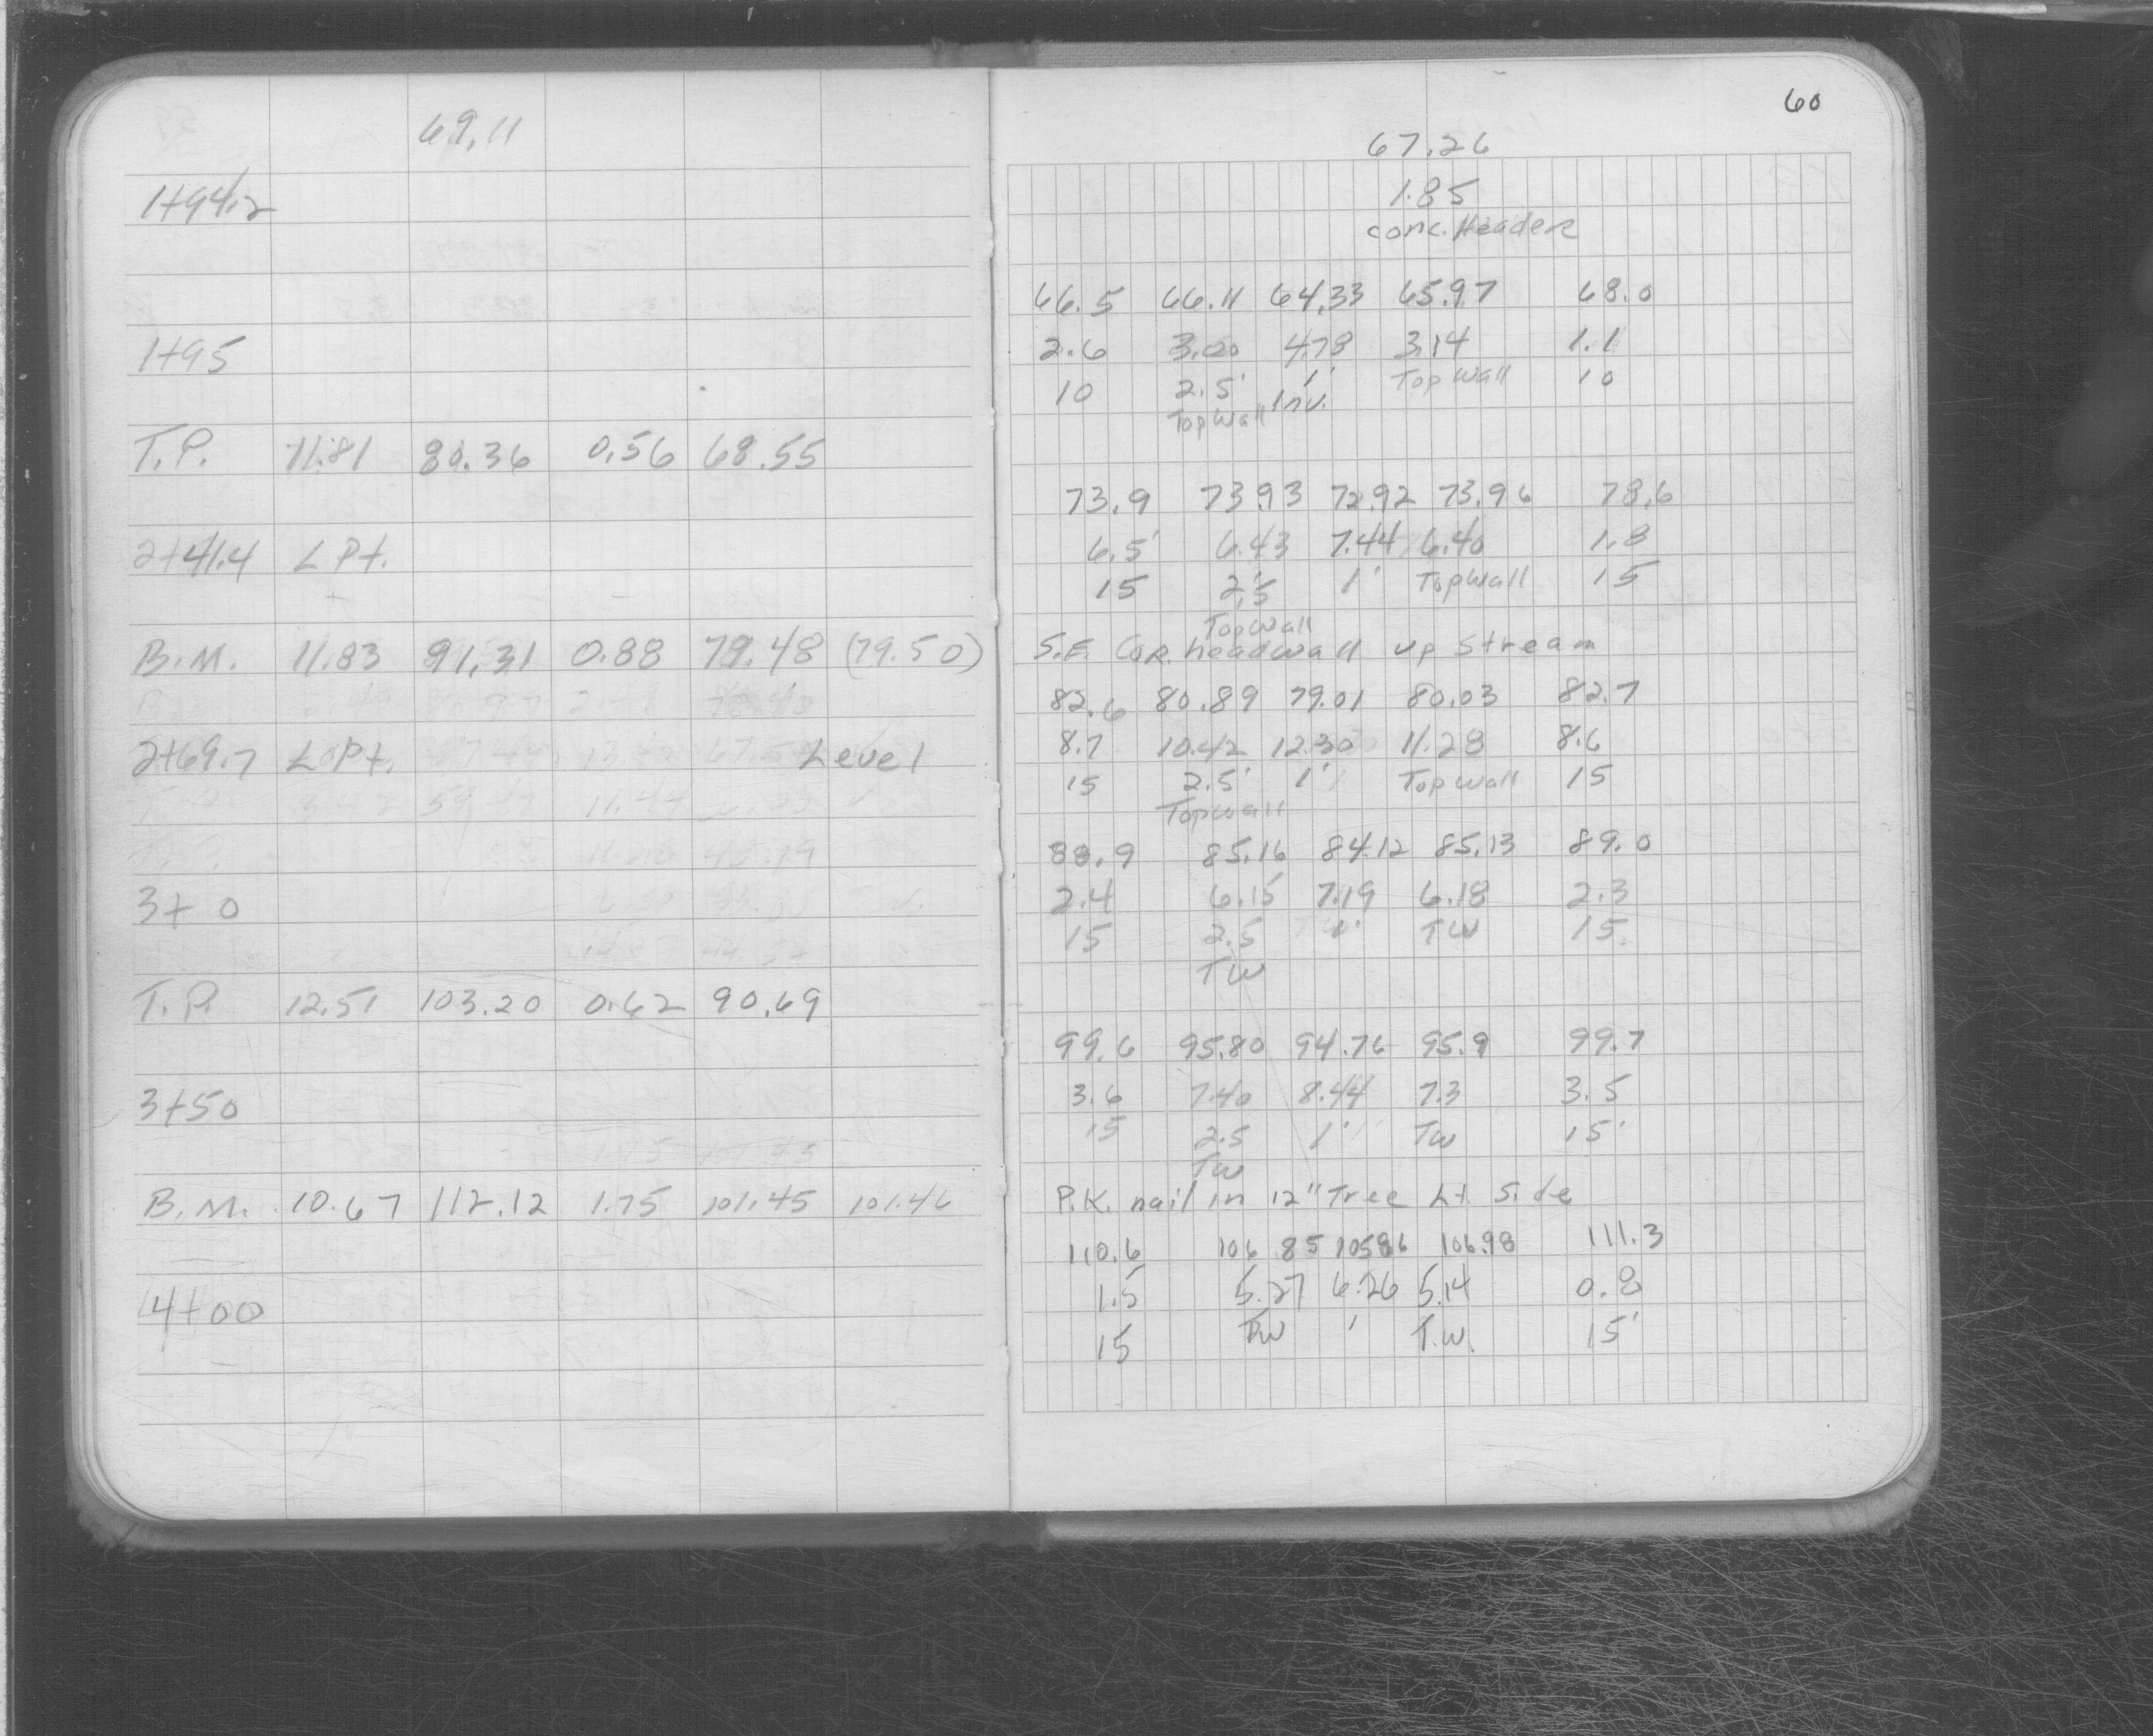 60
69.11
67.26
1+94.2
1.85
conc. Header
66.5 66.11 64.33 65.97 68.0
1+95
2.6 3.00 4.78 3.14 1.1
10 2.5' 1' Top Wall 10
Top Wall Inv.
T.P. 11.81 80.36 0.56 68.55
73.9 73.93 72.92 73.96 78.6
2+41.4 L Pt.
6.5' 6.43 7.44 6.40 1.8
15 2.5' 1' Top Wall 15
Top Wall
B.M. 11.83 91.31 0.88 79.48 (79.50)
S.E. Cor. headwall up Stream
82.6 80.89 79.01 80.03 82.7
2+69.7 L Pt. Level
8.7 10.42 12.30 11.28 8.6
15 2.5' 1' Top Wall 15
Top Wall
88.9 85.16 84.12 85.13 89.0
3+0
2.4 6.15 7.19 6.18 2.3
15 2.5 1' TW 15
TW
T.P. 12.51 103.20 0.62 90.69
99.6 95.80 94.76 95.9 99.7
3+50
3.6 7.40 8.44 7.3 3.5
15 2.5 1' TW 15'
TW
B.M. 10.67 112.12 1.75 101.45 101.46
P.K. nail in 12" Tree Lt. Side
110.6 106.85 105.86 106.98 111.3
4+00
1.5 5.27 6.26 5.14 0.8
15 TW ' T.W. 15'